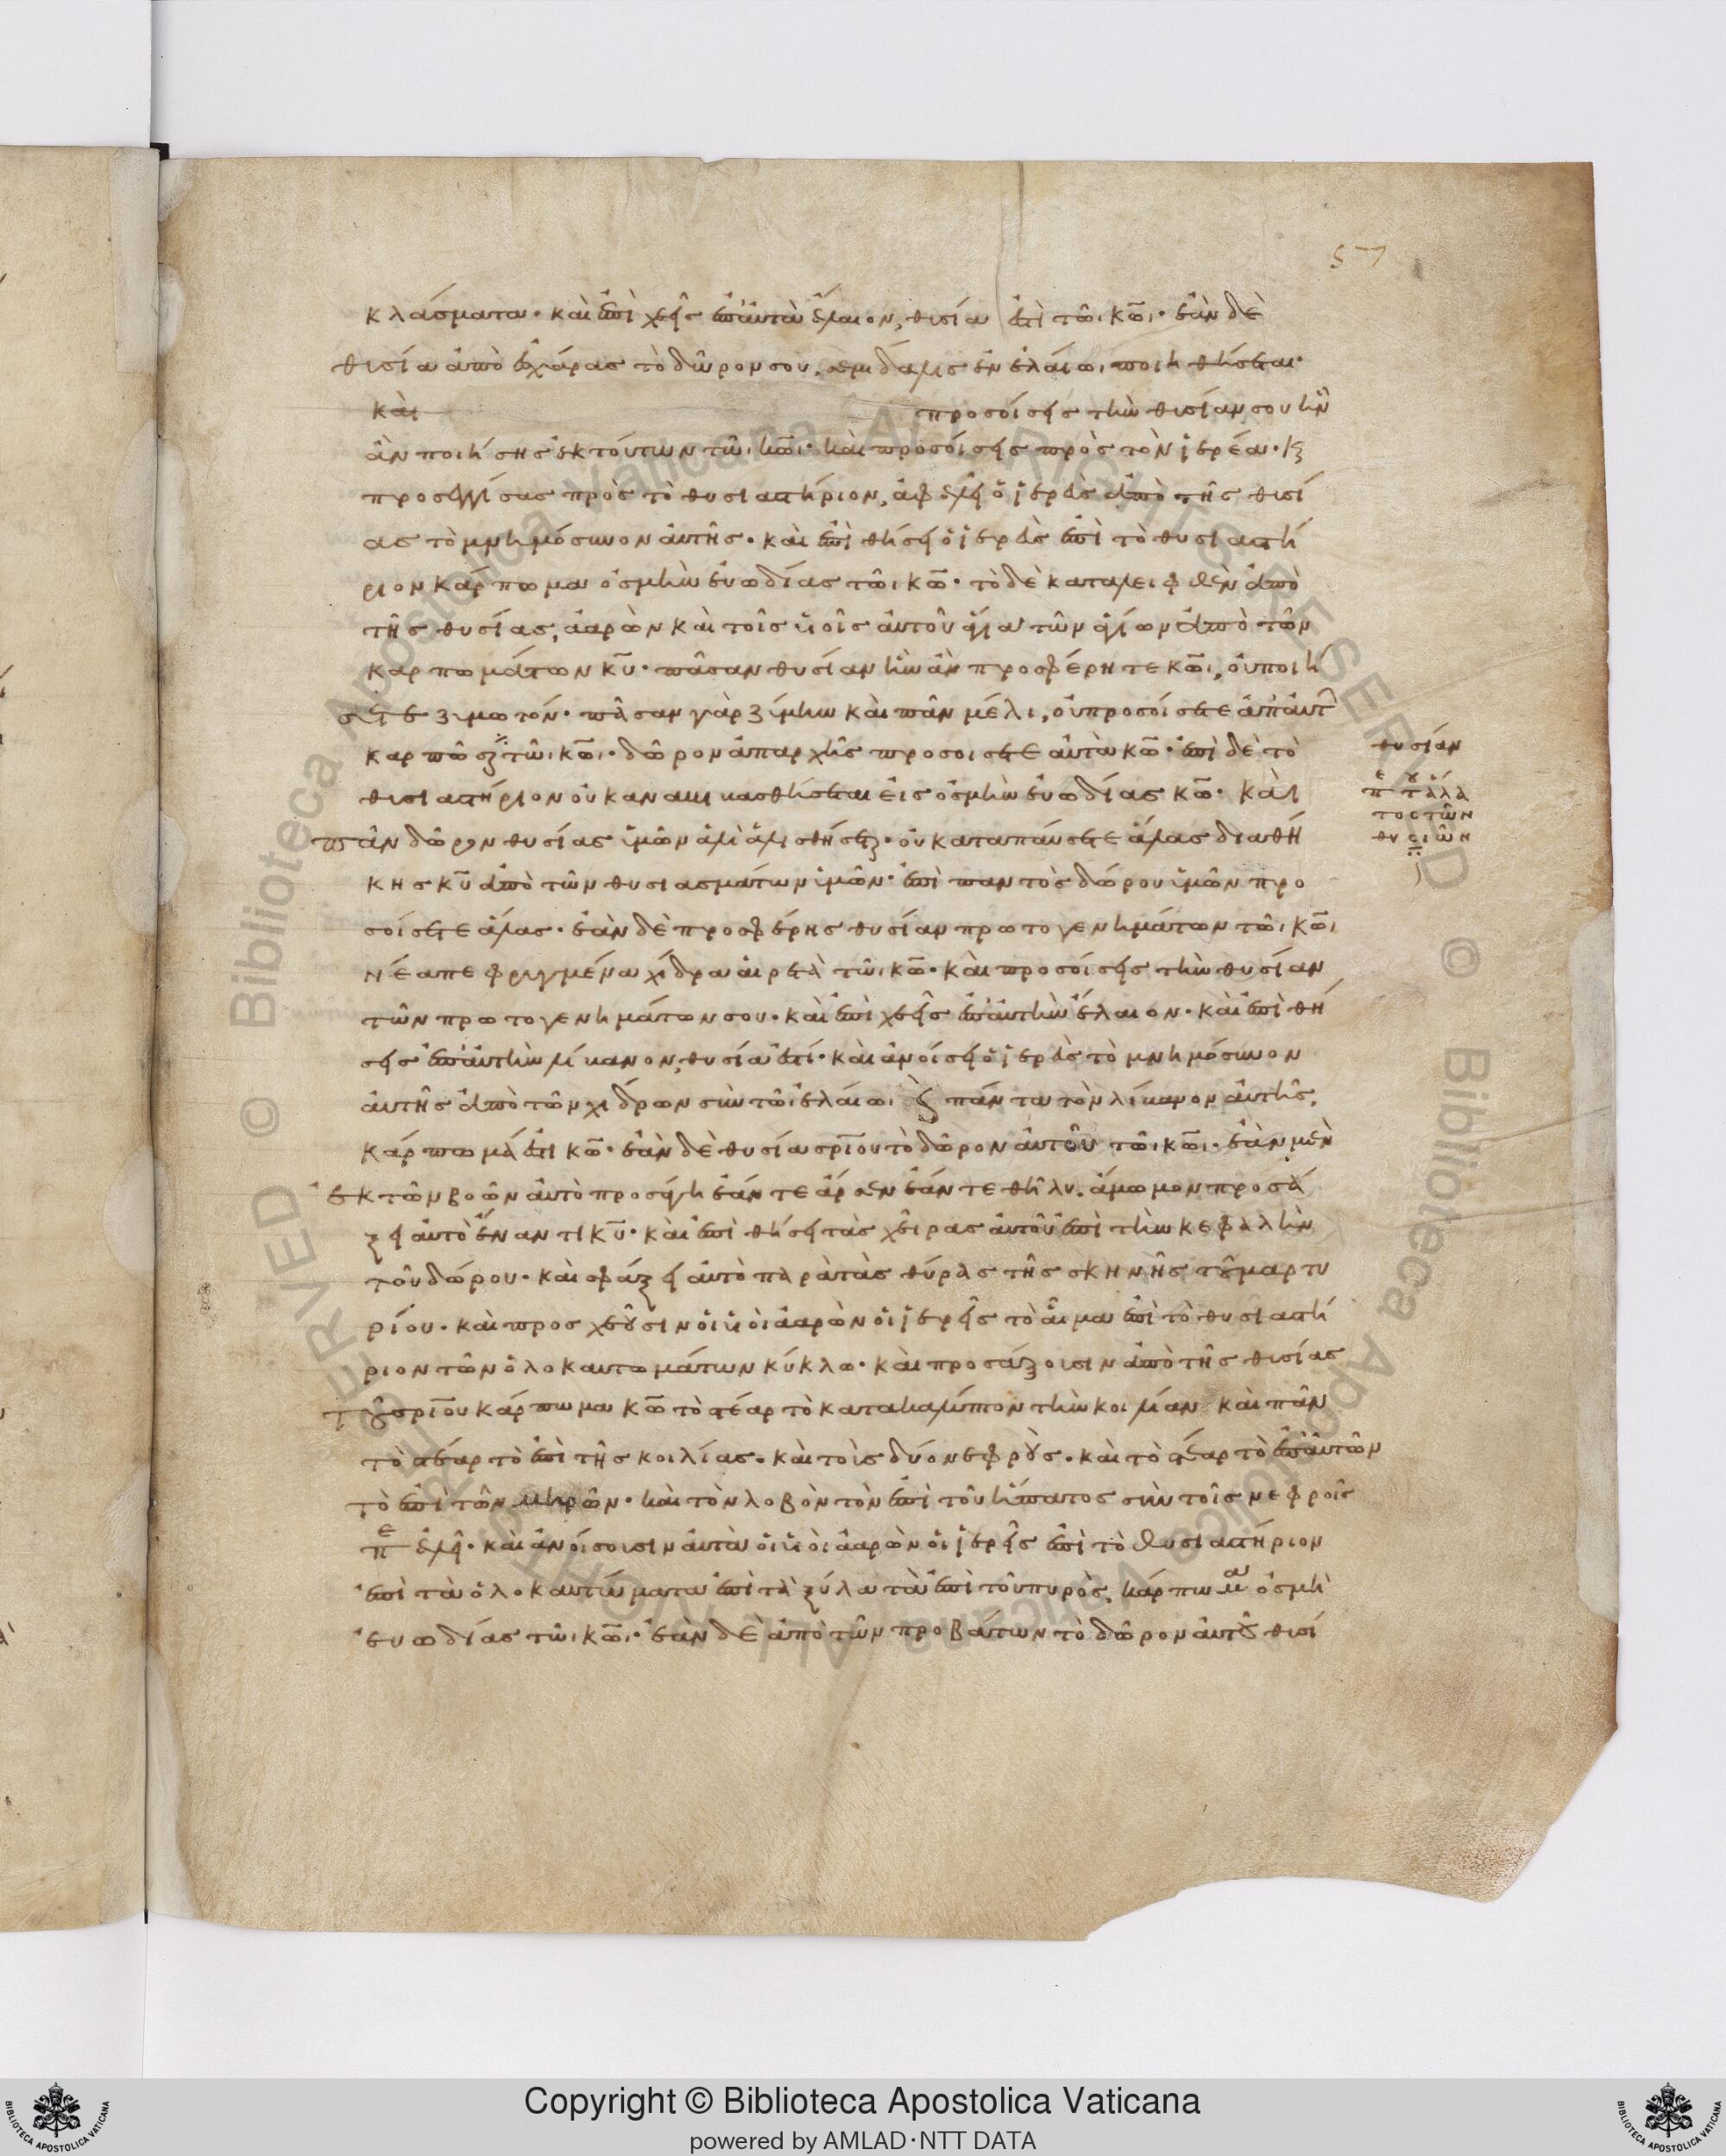 57
κλάσματα· καὶ ἐπιχεεῖς ἐπ' αὐτὰ ἔλαιον, θυσία ἐστὶ τῶι κῶι· ἐὰν δὲ
θυσία ἀπὸ ἐσχάρας τὸ δῶρον σου, σεμίδαλις ἐν ἐλαίωι ποιηθήσεται·
καὶ προσοίσεις τὴν θυσίαν σου ἣν
ἂν ποιήσης ἐκ τούτων τῶι κῶι· καὶ προσοίσεις πρὸς τὸν ἱερέα· κ
προσεγγίσας πρὸς τὸ θυσιαστήριον, ἀφελεῖ ὁ ἱερεὺς ἀπὸ τῆς θυσί
ας τὸ μνημόσυνον αὐτῆς· καὶ ἐπιθήσει ὁ ἱερεὺς ἐπὶ τὸ θυσιαστή
ριον κάρπωμα ὀσμὴν εὐωδίας τῶι κῶ· τὸ δὲ καταλειφθὲν ἀπὸ
τῆς θυσίας, ἀαρὼν καὶ τοῖς υἱοῖς αὐτοῦ ἅγια τῶν ἁγίων ἀπὸ τῶν
καρπωμάτων κυ· πᾶσαν θυσίαν ἣν ἂν προσφέρητε κῶι, οὐ ποιή
σετε ζυμωτόν· πᾶσαν γὰρ ζύμην καὶ πᾶν μέλι, οὐ προσοίσετε ἀπ' αὐτ
καρπῶσαι τῶι κῶι· δῶρον ἀπαρχῆς προσοίσετε αὐτὰ κῶ· ἐπὶ δὲ τὸ
θυσιαστήριον οὐκ ἀναβιβασθήσεται εἰς ὀσμὴν εὐωδίας κῶ· καὶ
πᾶν δῶρον θυσίας ὑμῶν ἁλὶ ἁλισθήσεται· οὐ καταπαύσετε ἅλας διαθή
κης κυ ἀπὸ τῶν θυσιασμάτων ὑμῶν· ἐπὶ παντὸς δώρου ὑμῶν προ
σοίσετε ἅλας· ἐὰν δὲ προσφέρης θυσίαν πρωτογενημάτων τῶι κῶι
νέα πεφριγμένα χίδρα ἐρεκτὰ τῶι κῶ· καὶ προσοίσεις τὴν θυσίαν
τῶν πρωτογενημάτων σου· καὶ ἐπιχεεῖς ἐπ' αὐτὴν ἔλαιον· καὶ ἐπιθή
σεις ἐπ' αὐτὴν λίβανον, θυσία ἐστί· καὶ ἀνοίσει ὁ ἱερεὺς τὸ μνημόσυνον
αὐτῆς ἀπὸ τῶν χίδρων σὺν τῶι ἐλαίωι ϗ πάντα τὸν λίβανον αὐτῆς,
κάρπωμά ἐστι κῶ· ἐὰν δὲ θυσία σρίου τὸ δῶρον αὐτοῦ τῶι κῶι· ἐὰν μὲν
ἐκ τῶν βοῶν αὐτὸ προσάγη ἐάν τε ἄρσεν ἐάν τε θῆλυ· ἄμωμον προσά
ξει αὐτὸ ἔναντι κυ· καὶ ἐπιθήσει τὰς χεῖρας αὐτοῦ ἐπὶ τὴν κεφαλὴν
τοῦ δώρου· καὶ σφάξει αὐτὸ παρὰ τὰς θύρας τῆς σκηνῆς τοῦ μαρτυ
ρίου· καὶ προσχεοῦσιν οἱ υἱοὶ ἀαρὼν οἱ ἱερεῖς τὸ αἷμα ἐπὶ τὸ θυσιαστή
ριον τῶν ὁλοκαυτωμάτων κύκλω· καὶ προσάξουσιν ἀπὸ τῆς θυσίας
τοῦ σρίου κάρπωμα κῶ τὸ στέαρ τὸ κατακαλύπτον τὴν κοιλίαν καὶ πᾶν
τὸ στέαρ τὸ ἐπὶ τῆς κοιλίας· καὶ τοὺς δύο νεφρούς· καὶ τὸ στέαρ τὸ ἐπ' αὐτῶν
τὸ ἐπὶ τῶν μηρῶν· καὶ τὸν λοβὸν τὸν ἐπὶ τοῦ ἥπατος σὺν τοῖς νεφροῖς
πε ἑλεῖ· καὶ ἀνοίσουσιν αὐτὰ οἱ υἱοὶ ἀαρὼν οἱ ἱερεῖς ἐπὶ τὸ θυσιαστήριον
ἐπὶ τὰ ὁλοκαυτώματα ἐπὶ τὰ ξύλα τὰ ἐπὶ τοῦ πυρὸς, κάρπωμα ὀσμὴ
εὐωδίας τῶι κῶι· ἐὰν δὲ ἀπὸ τῶν προβάτων τὸ δῶρον αὐτοῦ θυσί
θυσίαν
τος τῶν
θυσιῶν
Copyright © Biblioteca Apostolica Vaticana
powered by AMLAD·NTT DATA